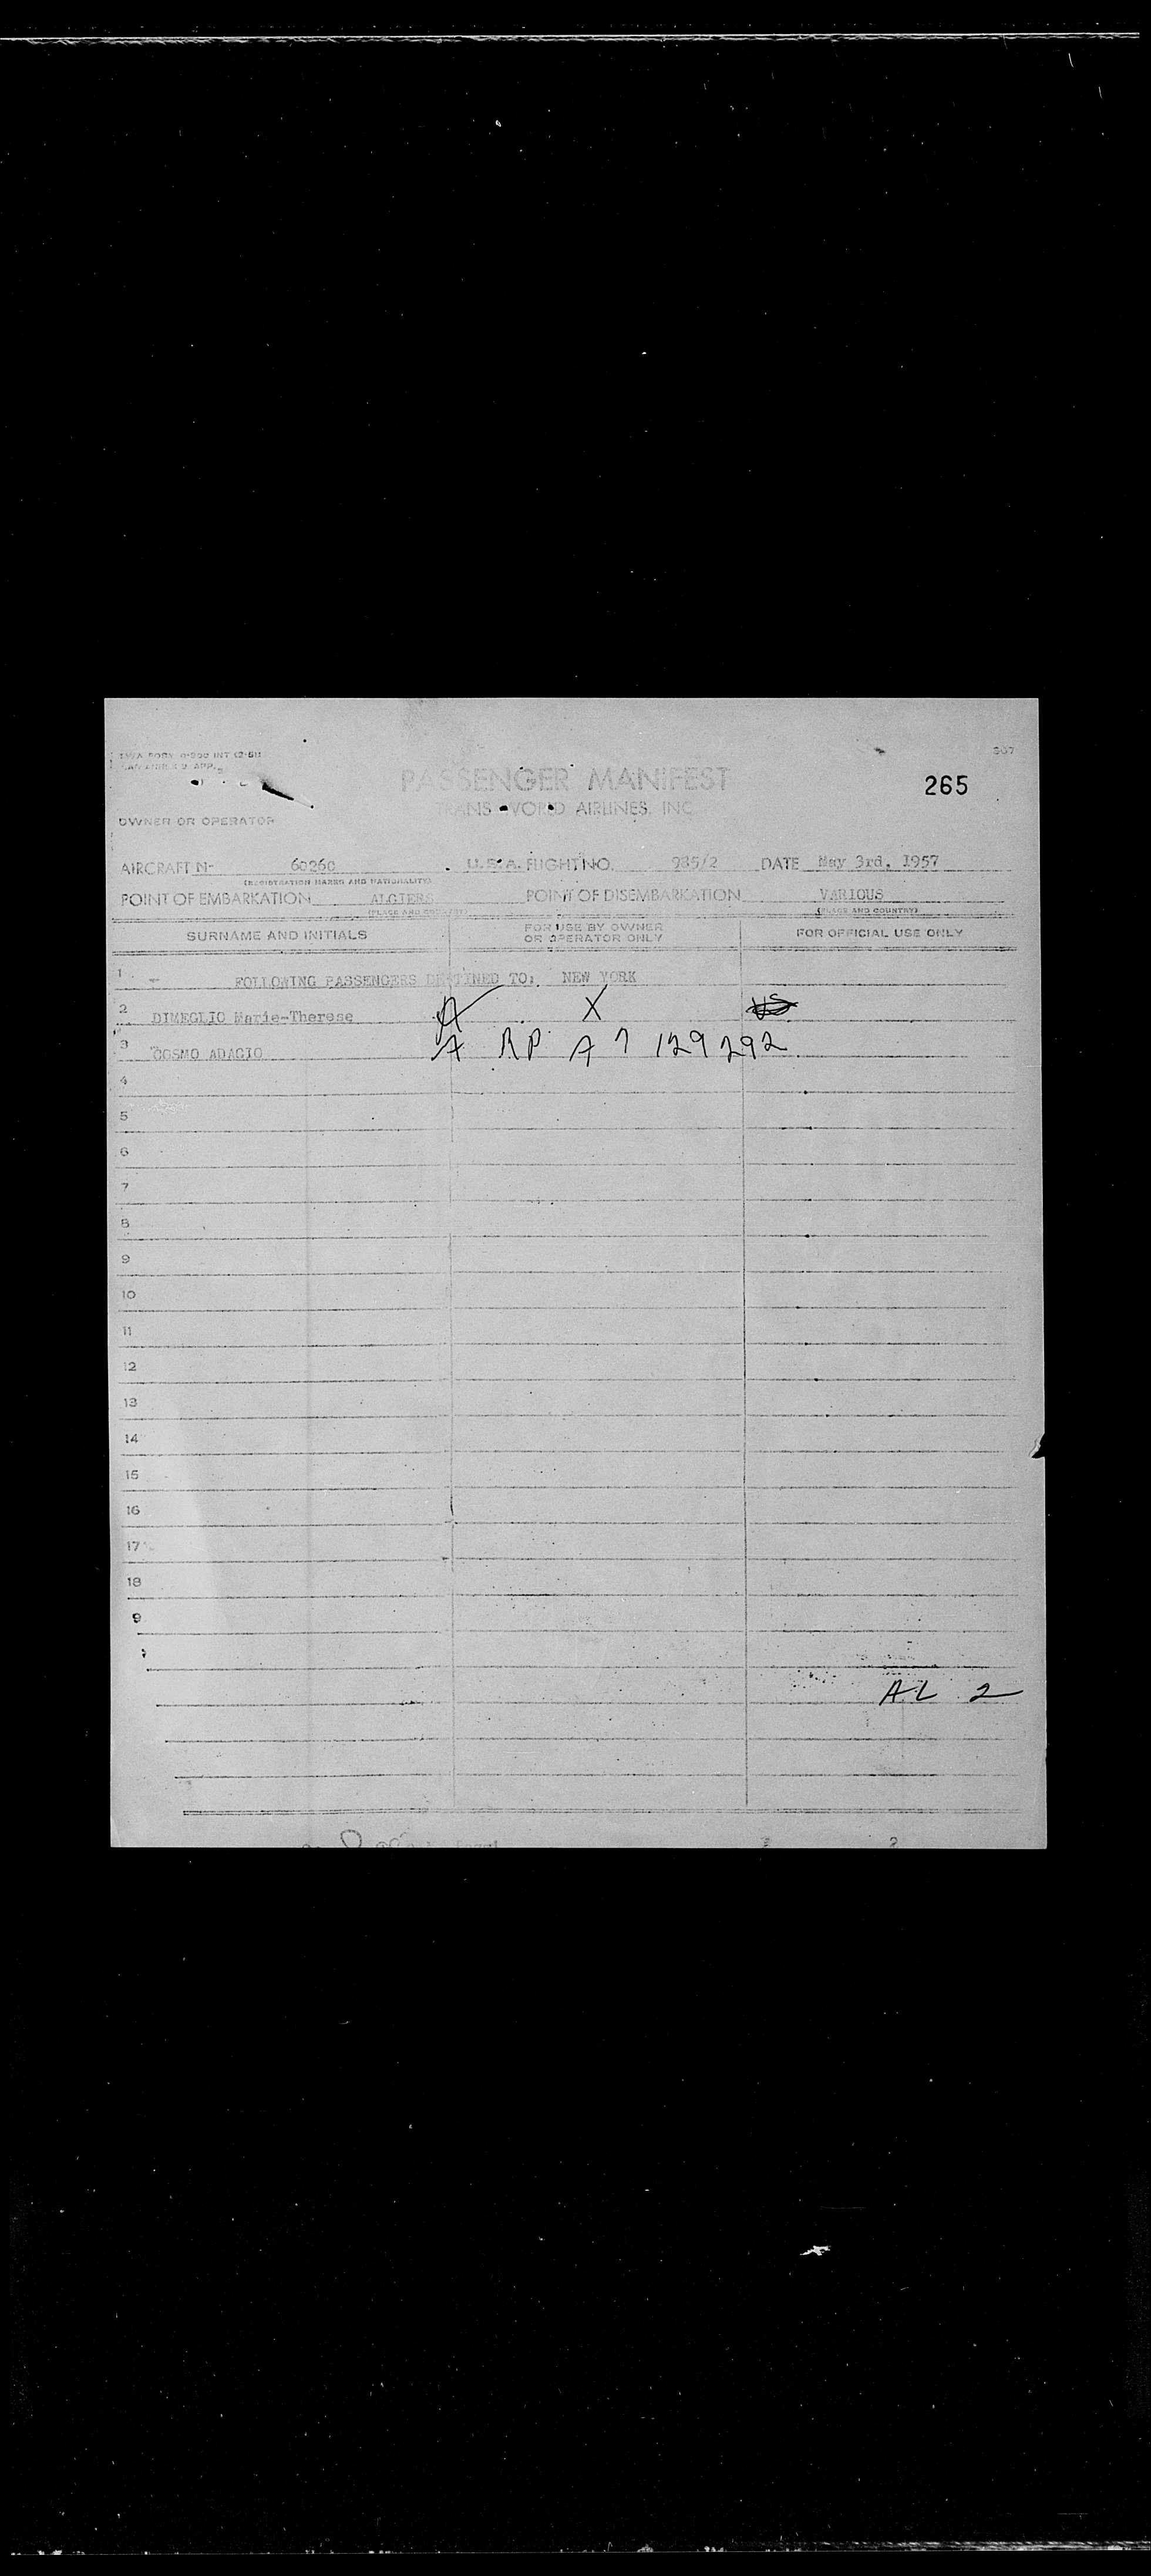 TWA FORM INT (2-51)
307
PASSENGER MANIFEST
265
TRANS WORLD AIRLINES, INC
OWNER OR OPERATOR
AIRCRAFT N- 6026C U.S.A. FLIGHT NO. 985/2 DATE May 3rd, 1957
(REGISTRATION MARKS AND NATIONALITY)
POINT OF EMBARKATION ALGIERS POINT OF DISEMBARKATION VARIOUS
(PLACE AND COUNTRY) (PLACE AND COUNTRY)
SURNAME AND INITIALS FOR USE BY OWNER OR OPERATOR ONLY FOR OFFICIAL USE ONLY
1 FOLLOWING PASSENGERS DESTINED TO: NEW YORK
2 DIMEGLIO Marie-Therese A X US
3 COSMO ADAGIO A RP A 7 129 292
4
5
6
7
8
9
10
11
12
13
14
15
16
17
18
9
AL 2
2